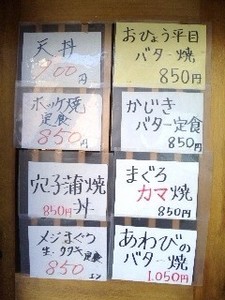 天丼
900円
おひょう平目
バター焼
850円
ホッケ焼
定食
850円
かじき
バター定食
850円
穴子蒲焼
丼
850円
まぐろ
カマ焼
850円
メジまぐろ
生・タタキ定食
850
エン
あわびの
バター焼
1.050円